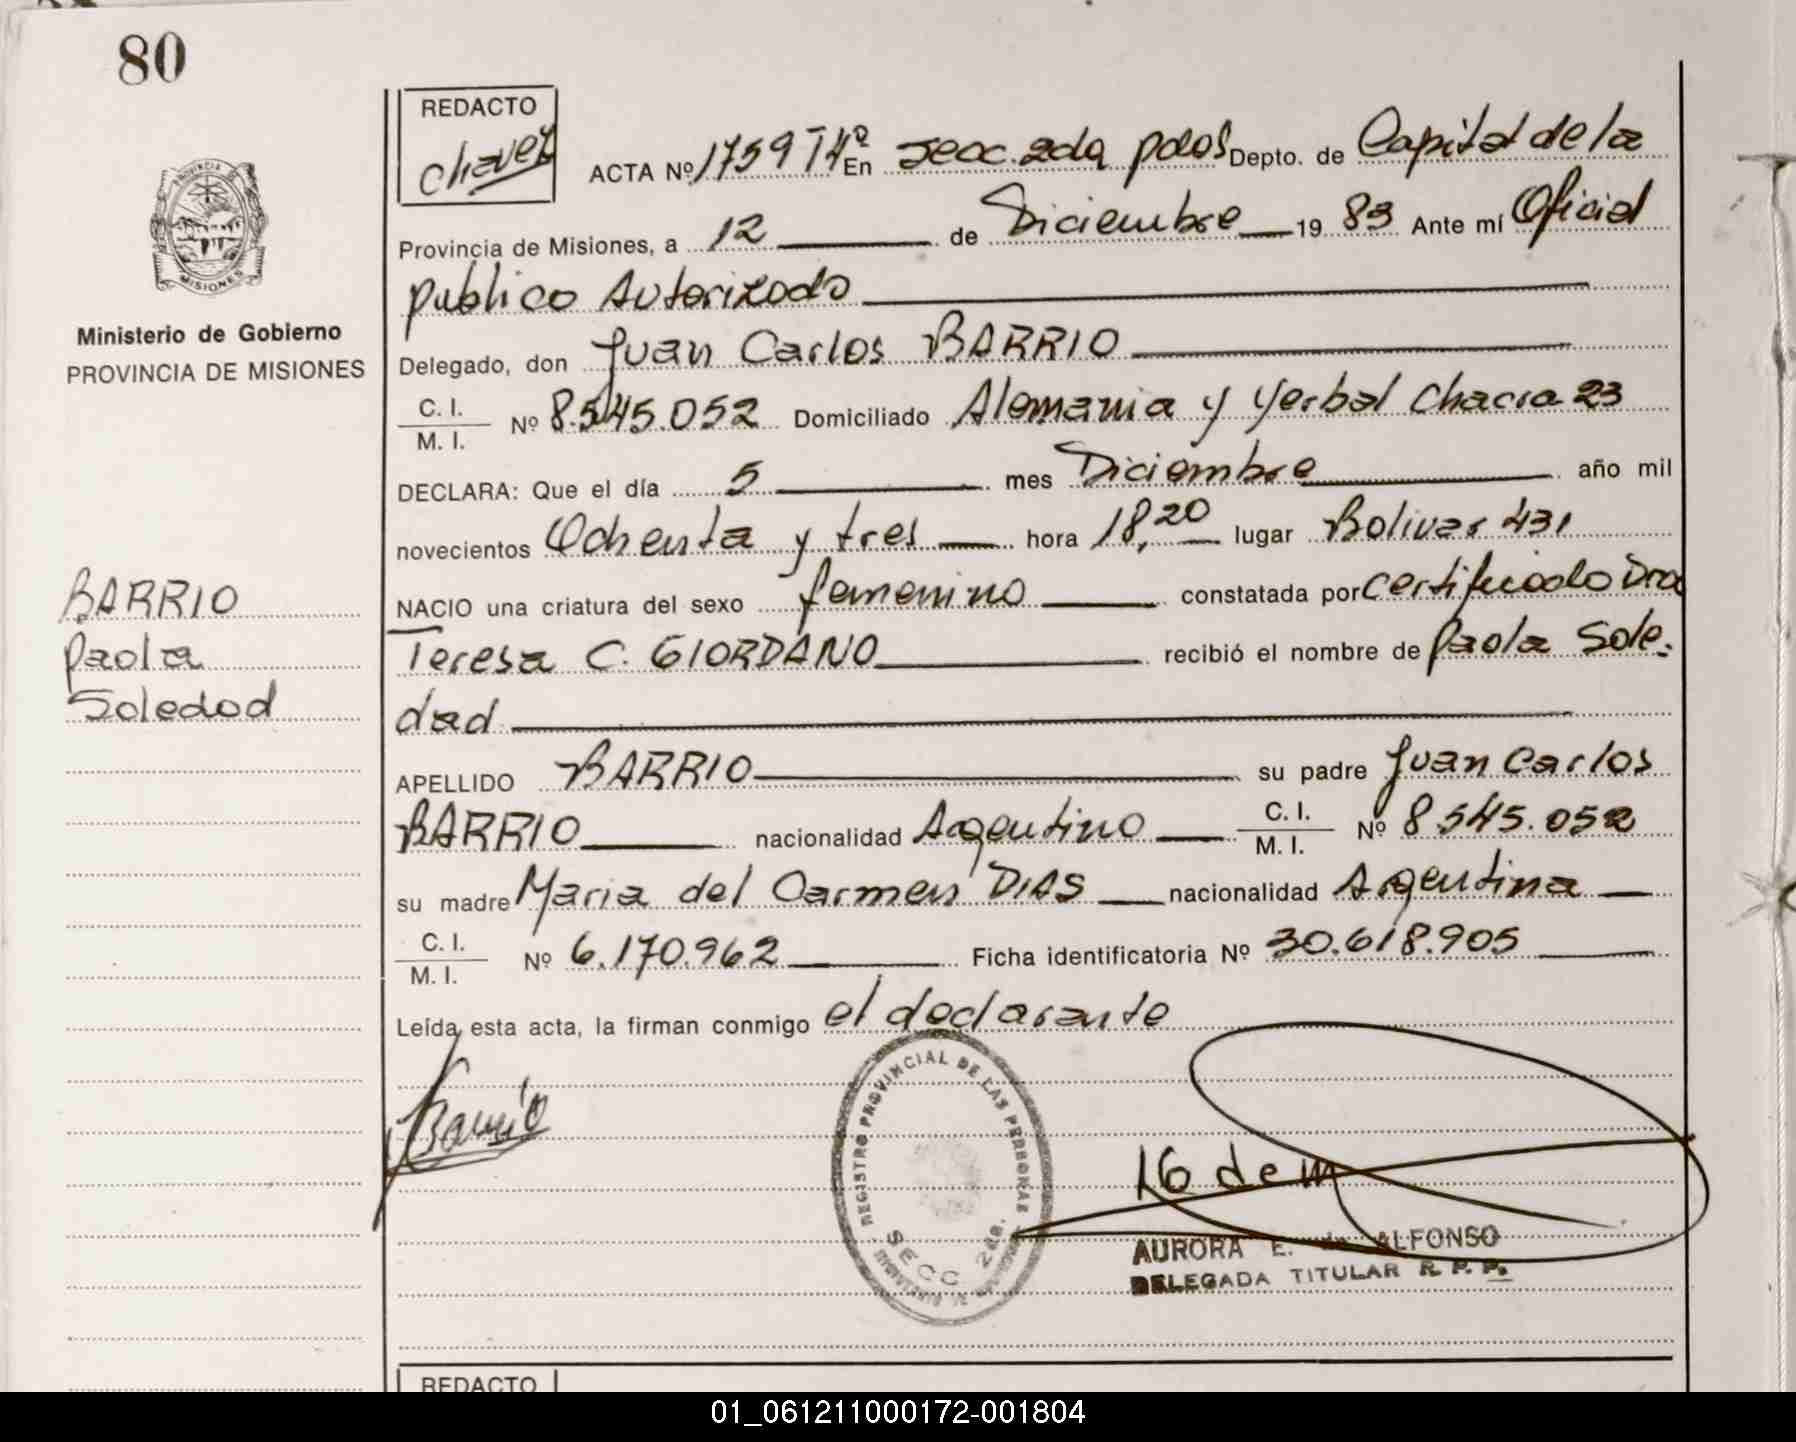 80
PROVINCIA DE
MISIONES
Ministerio de Gobierno
PROVINCIA DE MISIONES
BARRIO
Paola
Soledad
REDACTO
Chavez
ACTA Nº 1759 T4º En secc. 2da pdas Depto. de Capital de la
Provincia de Misiones, a 12 de Diciembre 19 83 Ante mí Oficial
publico Autorizado
Delegado, don Juan Carlos BARRIO
C. I.
M. I. Nº 8.545.052 Domiciliado Alemania y Yerbal Chacra 23
DECLARA: Que el día 5 mes Diciembre año mil
novecientos Ochenta y tres hora 18,20 lugar Bolivar 431
NACIO una criatura del sexo femenino constatada por certificado Dra
Teresa C. GIORDANO recibió el nombre de Paola Sole-
dad
APELLIDO BARRIO su padre Juan Carlos
BARRIO nacionalidad Argentino C. I. M. I. Nº 8.545.052
su madre Maria del Carmen DIAS nacionalidad Argentina
C. I.
M. I. Nº 6.170.962 Ficha identificatoria Nº 30.618.905
Leída esta acta, la firman conmigo el declarante
Barrio
REGISTRO PROVINCIAL DE LAS PERSONAS
SECC 2da.
16 dem
AURORA E. de ALFONSO
DELEGADA TITULAR R. P. P.
REDACTO
01_061211000172-001804